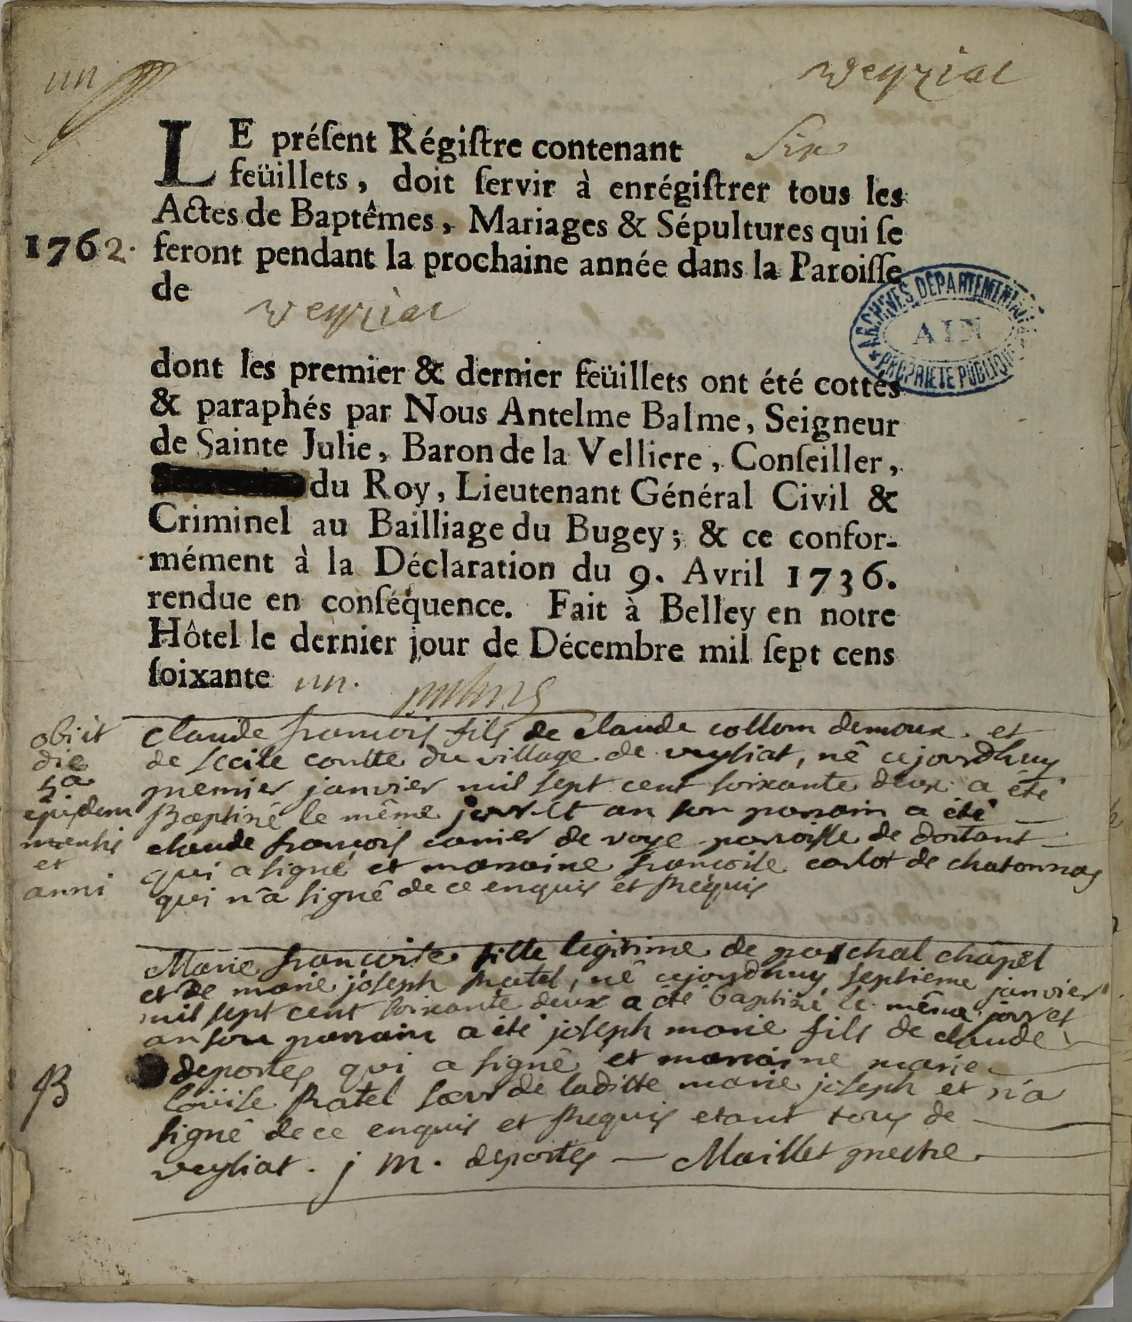 un
veyziat
LE présent Régistre contenant Six
feüillets, doit servir à enrégistrer tous les
Actes de Baptêmes, Mariages & Sépultures qui se
1762. feront pendant la prochaine année dans la Paroisse
de
veyziat
ARCHIVES DEPARTEMENTALES
AIN
PROPRIETE PUBLIQUE
dont les premier & dernier feüillets ont été cottés
& paraphés par Nous Antelme Balme, Seigneur
de Sainte Julie, Baron de la Velliere, Conseiller,
du Roy, Lieutenant Général Civil &
Criminel au Bailliage du Bugey; & ce confor-
mément à la Déclaration du 9. Avril 1736.
rendue en conséquence. Fait à Belley en notre
Hôtel le dernier jour de Décembre mil sept cens
soixante un.
obiit
die
5a
ejusdem
mensis
et
anni
claude francois fils de claude collom demoux et
de Cecile coulte du village de veysiat, né cejourdhuy
premier janvier mil sept cent soixante deux a été
Baptisé le même jour et an son parrain a été
claude francois de voye parroisse de dortant
qui a signé et marraine francoise carlot de chatonnas
qui n'a signé de ce enquis et Requis
Marie françoise fille legitime de paschal chapel
et de marie joseph Ratel, né cejourdhuy septieme janvier
mil sept cent soixante deux a été baptisé le même jour et
an son parrain a été joseph marie fils de claude
B
deportes qui a signé et marraine marie
loüise Ratel sœur de laditte marie joseph et n'a
signé de ce enquis et Requis etant tous de
veysiat. j m. deportes — Maillet prestre